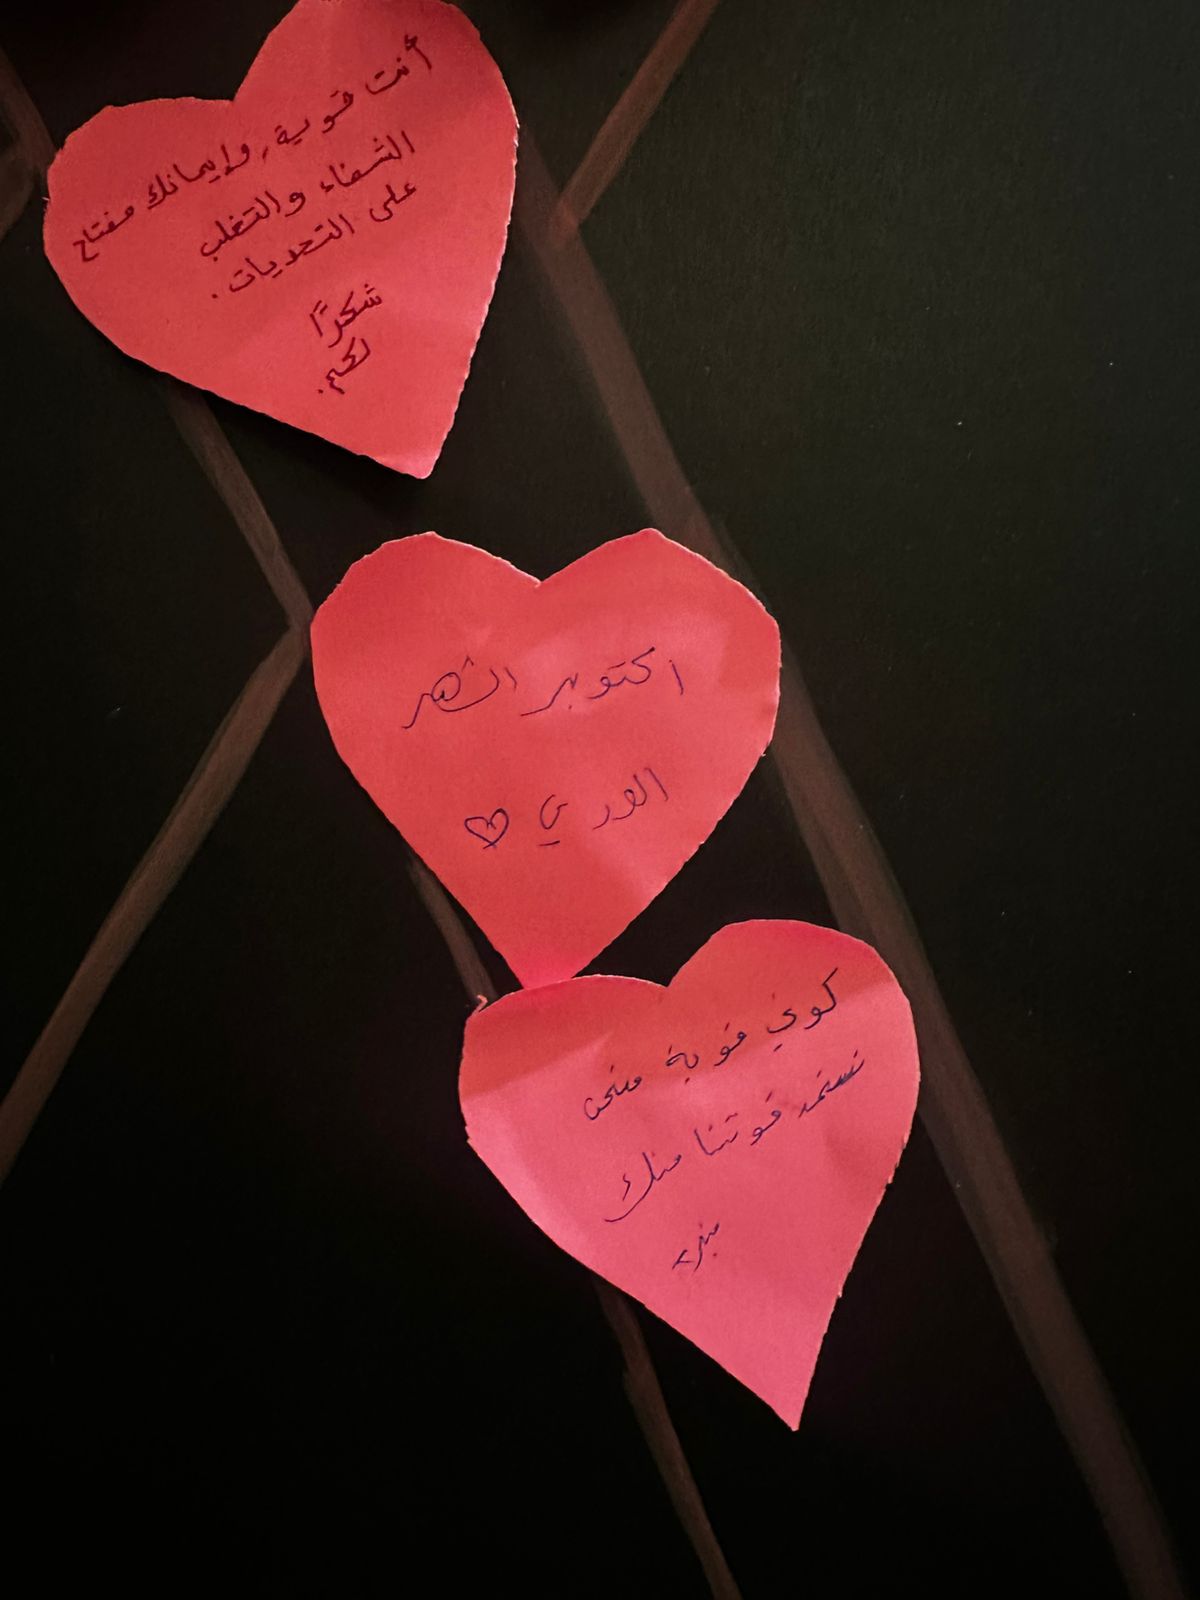 أنت قوية، وإيمانك مفتاح
الشفاء والتغلب
على التحديات.
شكرًا
لكم.
اكتوبر الشهر
الوردي ♡
كوني قوية فنحن
نستمد قوتنا منك